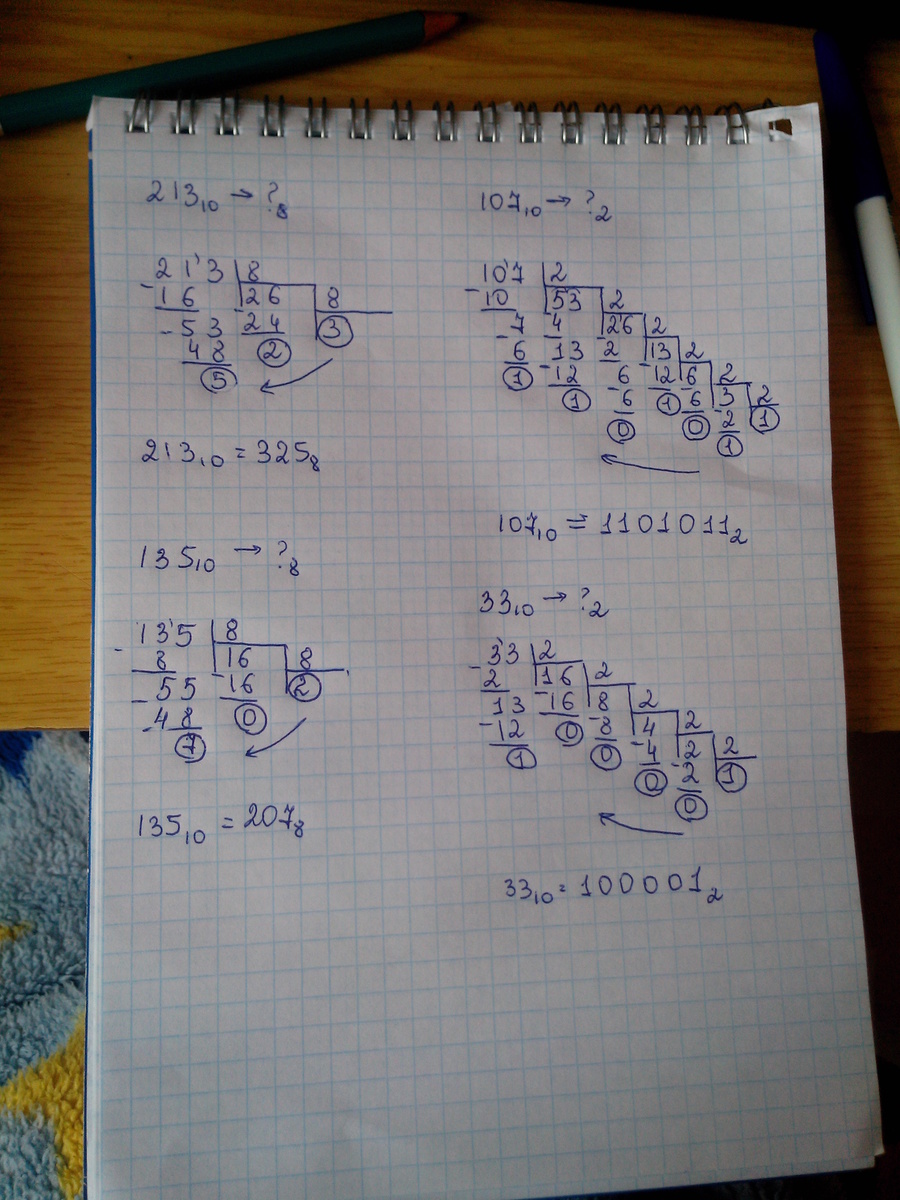 213₁₀ → ?₈
2 1' 3 | 8
- 1 6 | 26 | 8
- 5 3 - 24 (3)
4 8 (2)
(5)
213₁₀ = 325₈
135₁₀ → ?₈
- 13'5 | 8
8 | 16 | 8
- 55 - 16 (2)
- 48 (0)
(7)
135₁₀ = 207₈
107₁₀ → ?₂
10'7 | 2
- 10 | 53 | 2
- 7 4 | 26 | 2
6 13 - 2 | 13 | 2
(1) - 12 6 - 12 | 6 | 2
(1) - 6 (1) - 6 | 3 | 2
(0) (0) - 2 (1)
(1)
107₁₀ = 1101011₂
33₁₀ → ?₂
- 3'3 | 2
2 | 16 | 2
13 - 16 | 8 | 2
- 12 (0) - 8 | 4 | 2
(1) (0) - 4 | 2 | 2
(0) - 2 (1)
(0)
33₁₀ = 100001₂